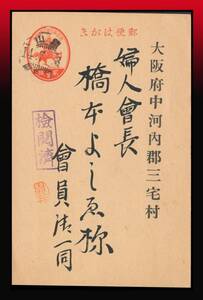 郵便はがき
大阪府中河内郡三宅村
婦人會長
橋本よしゑ殿
會員浩一同
検閲済